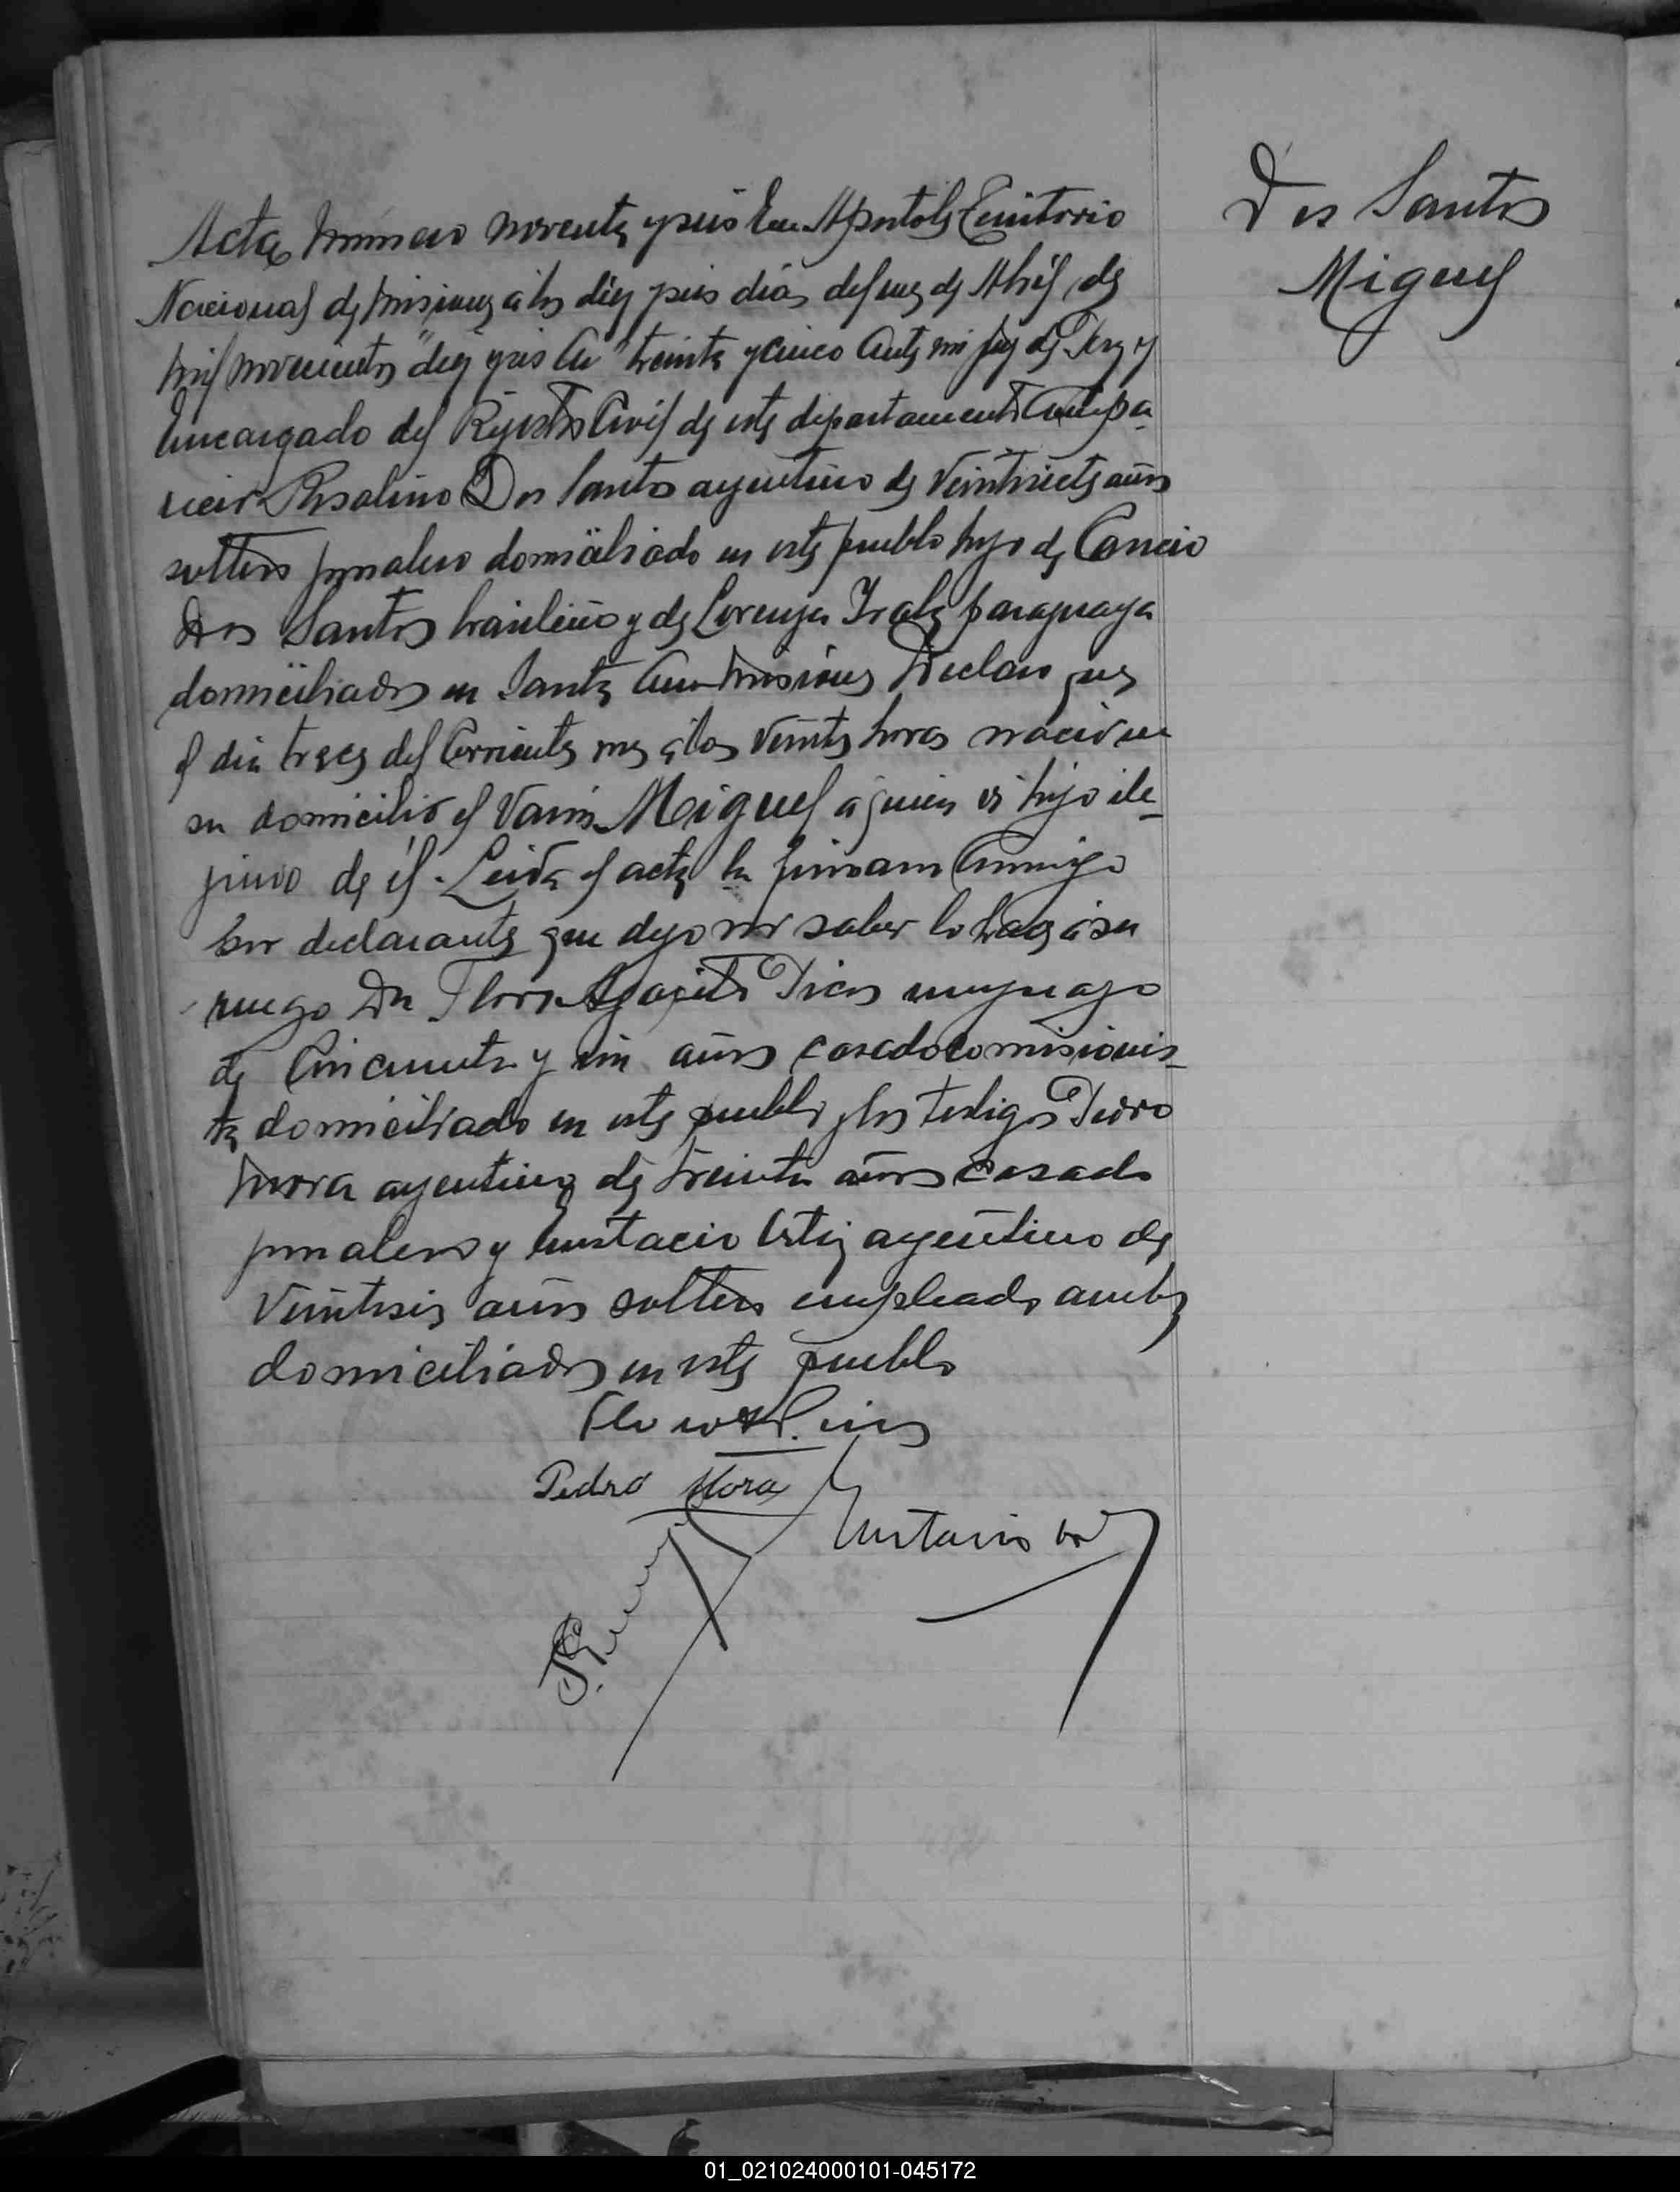 Dos Santos
Miguel
Acta Número noventa y seis En Apostoles Territorio
Nacional de Misiones a los diez y seis dias del mes de Abril de
mil novecientos "diez y seis" treinta y cinco Ante mi Juez de Paz y
Encargado del Rejistro Civil de este departamento Compa-
recio Rosalino Dos Santos argentino de veintisiete años
soltero jornalero domiciliado en este pueblo hijo de Cancio
Dos Santos brasileño y de Lorenza Irala paraguaya
domiciliados en Santa Ana Misiones Declaro que
el dia trece del Corriente mes a las veinte horas nacio en
su domicilio el Varon Miguel a quien es hijo ile-
jimo de él. Leida el acta la firmaron Conmigo
declarante que dijo no saber lo hace a su
ruego Dn Floro Dias uruguayo
de Cincuenta y un años casado comisionis-
ta domiciliado en este pueblo y los testigos Pedro
Mora argentino de treinta años casado
jornalero y Eustacio Ortiz argentino de
Veintiseis años soltero empleado ambos
domiciliados en este pueblo
Pedro Mora
Eustacio
01_021024000101-045172